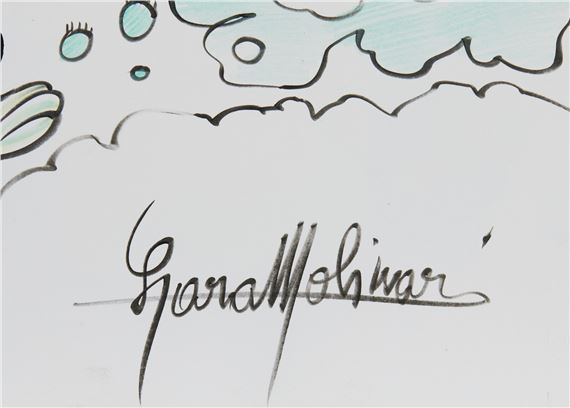 Sara Molinari